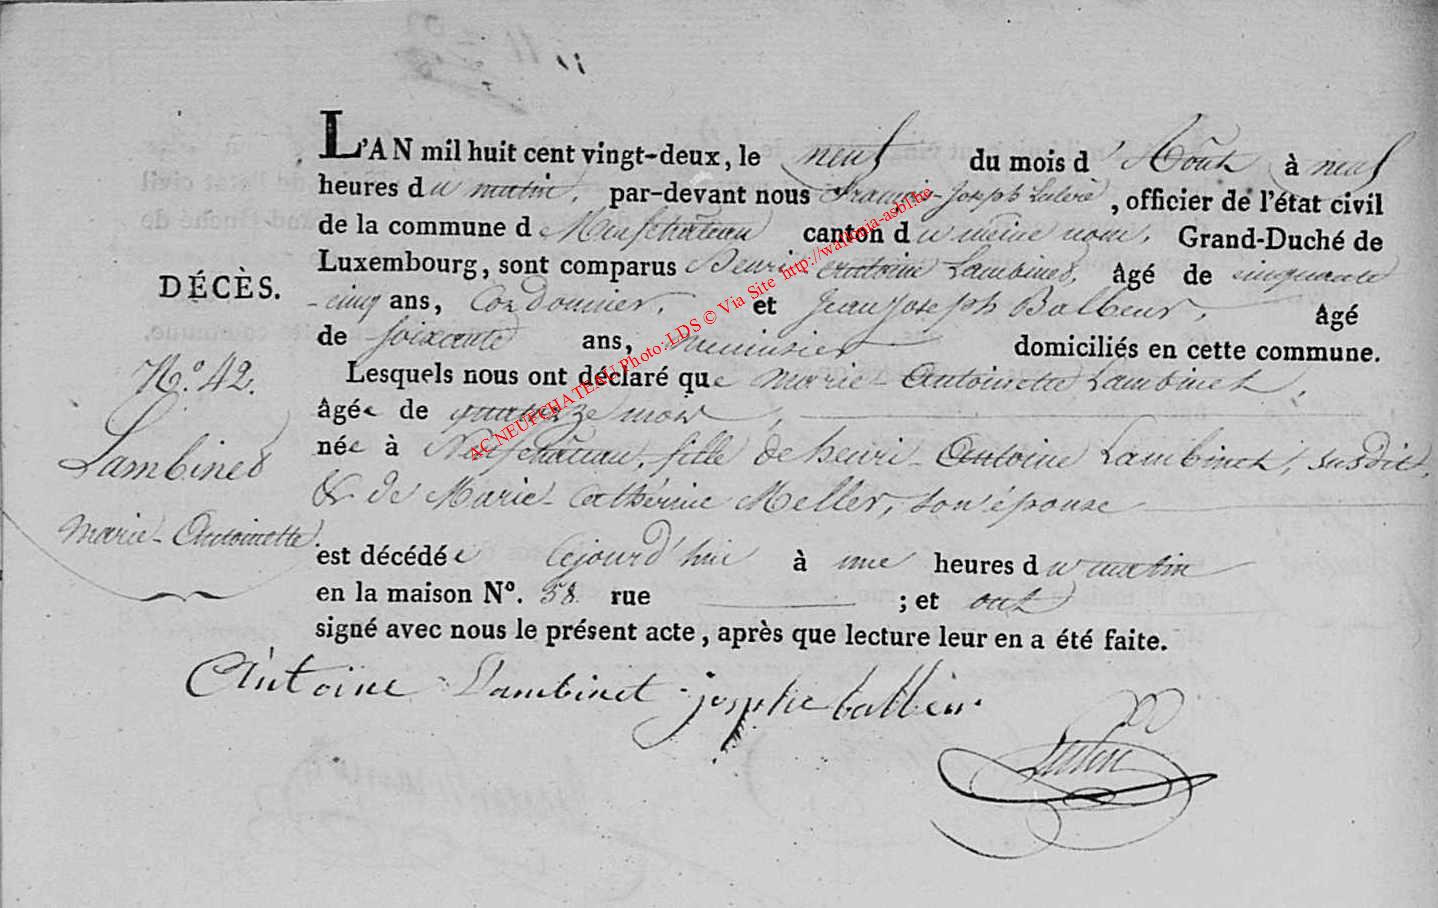 L'AN mil huit cent vingt-deux, le neuf du mois d'Août à neuf
heures du matin, par-devant nous François-Joseph, officier de l'état civil
de la commune d Neufchâteau canton du même nom, Grand-Duché de
Luxembourg, sont comparus Henri-Antoine Lambinet, âgé de cinquante
DÉCÈS.
-cinq ans, Cordonnier, et Jean Joseph Balbeur, âgé
de soixante ans, menuisier domiciliés en cette commune.
N.° 42.
Lesquels nous ont déclaré que Marie-Antoinette Lambinet,
âgée de quatorze mois,
Lambinet
née à Neufchâteau, fille de henri-Antoine Lambinet, susdit,
& de Marie-Catherine Meller, son épouse
Marie-Antoinette.
est décédée cejourd'hui à une heures du matin
en la maison N°. 58 rue ; et ont
signé avec nous le présent acte, après que lecture leur en a été faite.
Antoine Lambinet josephe balbeur
AC NEUFCHATEAU Photo: LDS © Via Site http://wallonia-asbl.be